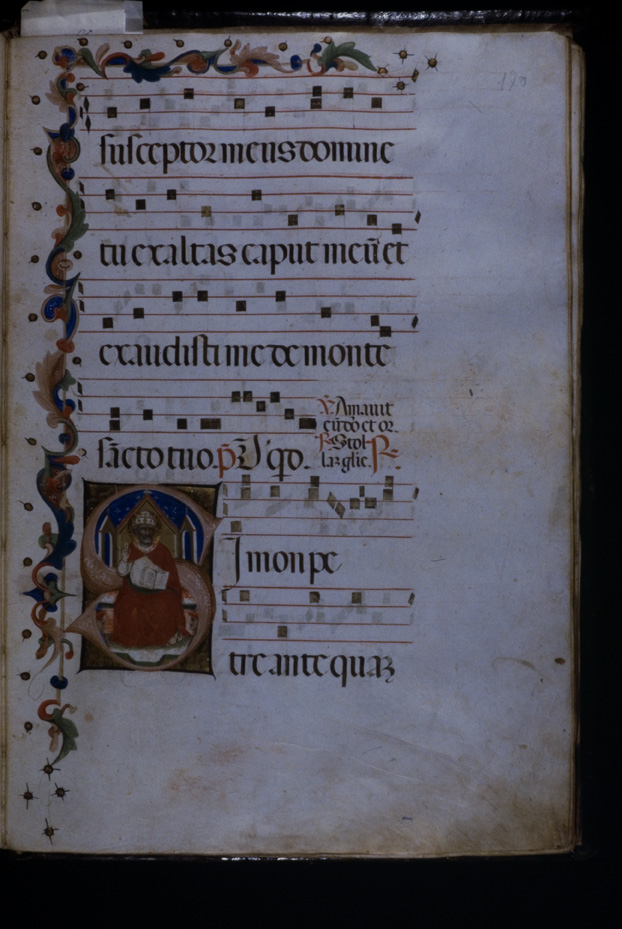 susceptor meus domine
tu exaltas caput meū et
exaudisti me de monte
sācto tuo. p̄. I qd.
℣. Amauit
eū do et or.
Stol-
laz glie. ℟.
Simon pe
tre ante quaz